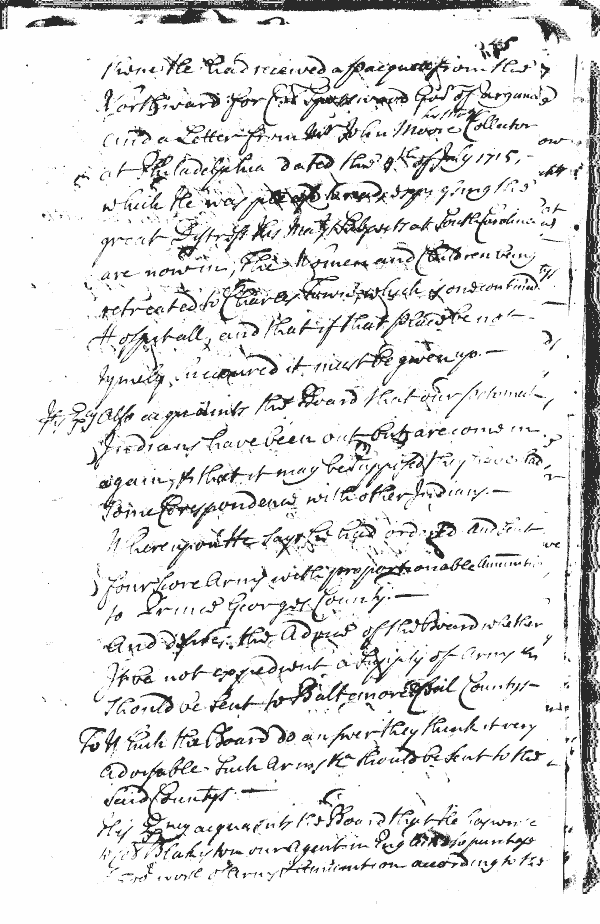 he had received a pacquett from the
Northward for and Govr of Virginia
and a Letter from Mr John Moore his Majtys Collector
at Philadelphia dated the 9th of July 1715,
which he was pleased to read expressing the
great Distress his Majtys Subjects at South Carolina
are now in, The Women and Children being
retreated to Charles Town which is one continued
Hospitall, and that if that place be not
tymely succoured it must be given up.—
His Exy Also acquaints the Board that our
Indians have been out but are come in
again, & that it may be supposed they have had
some Correspondence with other Indians.—
Whereupon He says he had ordered and sent
four score Arms with proportionable Ammunition
to Prince Georges County.—
And desires the Advice of the Board whether
It be not expedient a Supply of Arms &c
should be sent to Baltemore & Cecil Countys—
To Which the Board do answer they think it very
advisable such Arms &c should be sent to the
said Countys.—
His Exncy acquaints the Board that he has
to Blakiston our Agent in England to purchase
worth of Arms & Amunition according to the